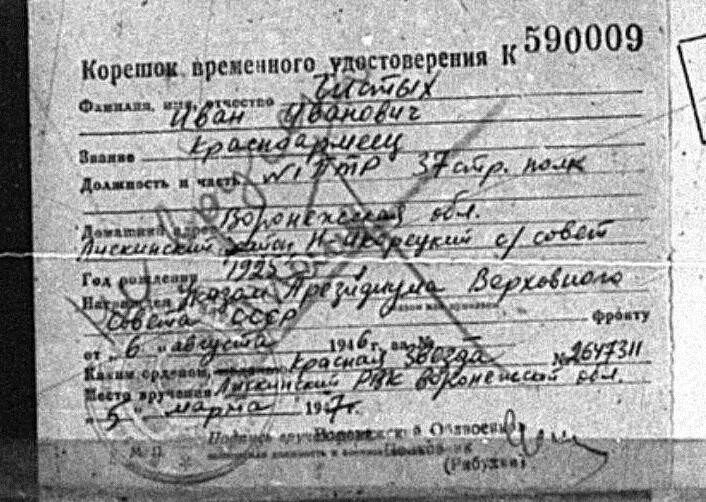 Корешок временного удостоверения К 590009
Фамилия, имя, отчество Чистых
Иван Иванович
Звание Красноармеец
Должность и часть №1 ПТР 37 стр. полк
Домашний адрес Воронежская обл.
Лискинский район Н-Икорецкий с/совет
Год рождения 1925
Награжден Указом Президиума Верховного
Совета СССР фронту
от „6" августа 1946 г. за №
Каким орденом, Красная Звезда №2647311
Место вручения Лискинский РВК Воронежской обл.
„5" марта 1947г.
Подпись Воронежский Облвоенком
М. П. Полковник
(Рябухин)